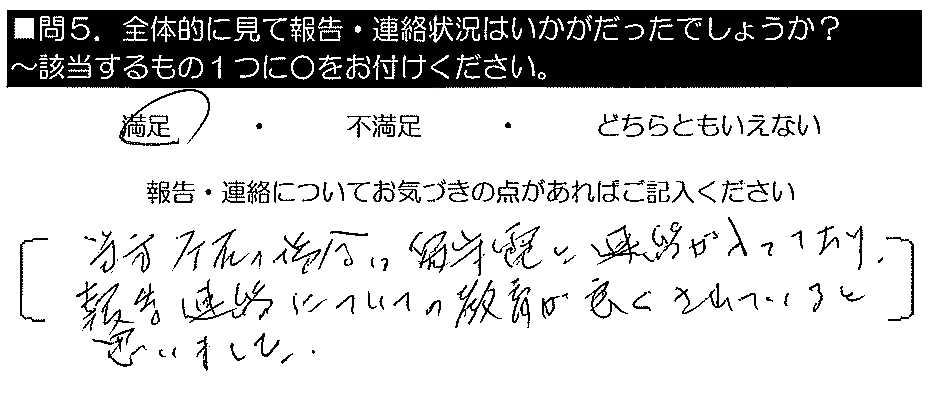 ■問5．全体的に見て報告・連絡状況はいかがだったでしょうか？
～該当するもの1つに○をお付けください。
満足 ・ 不満足 ・ どちらともいえない
報告・連絡についてお気づきの点があればご記入ください
当方不在の場合は留守電に連絡が入っており、
報告連絡についての教育が良くされていると
思いました。